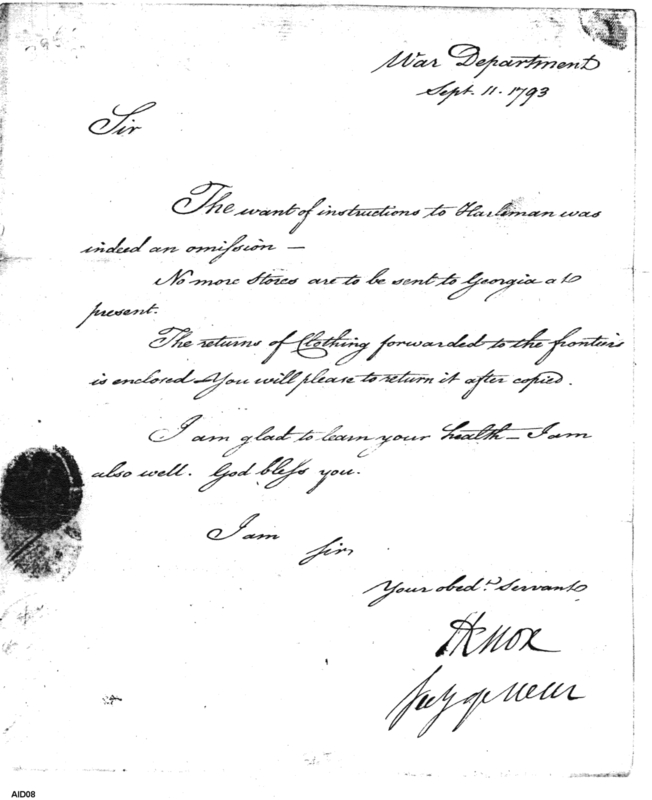 War Department
Sept. 11. 1793
Sir
The want of instructions to Harliman was
indeed an omission —
No more Stores are to be sent to Georgia at
present.
The returns of Clothing forwarded to the frontiers
is enclosed – You will please to return it after copied.
I am glad to learn your health – I am
also well. God bless you.
I am
Sir
Your obed.t Servant
HKnox
Secy of War
AID08